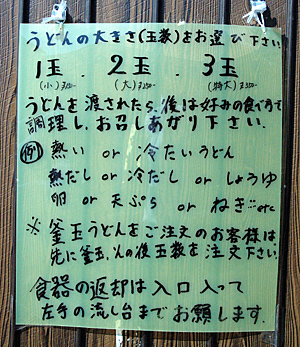 うどんの大きさ(玉数)をお選び下さい
1玉 . 2玉 . 3玉
(小) (大) (特大)
うどんを渡されたら、後は好みの食べ方で
調理し、お召しあがり下さい.
例 熱い or 冷たいうどん
熱だし or 冷だし or しょうゆ
卵 or 天ぷら or ねぎ…etc
※ 釜玉うどんをご注文のお客様は、
先に釜玉、その後玉数を注文下さい.
食器の返却は入口入って
左手の流し台までお願します.